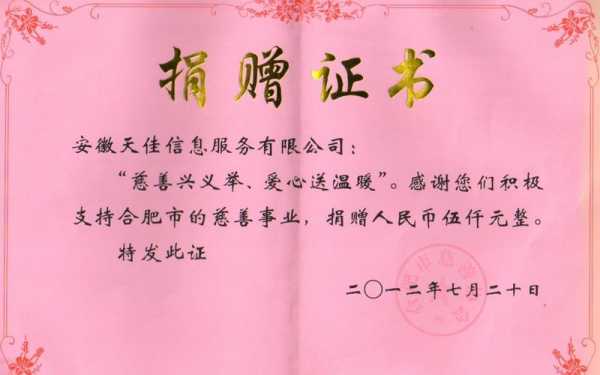 捐赠证书
安徽天佳信息服务有限公司：
“慈善兴义举、爱心送温暖”。感谢您们积极
支持合肥市的慈善事业，捐赠人民币伍仟元整。
特发此证
二〇一二年七月二十日